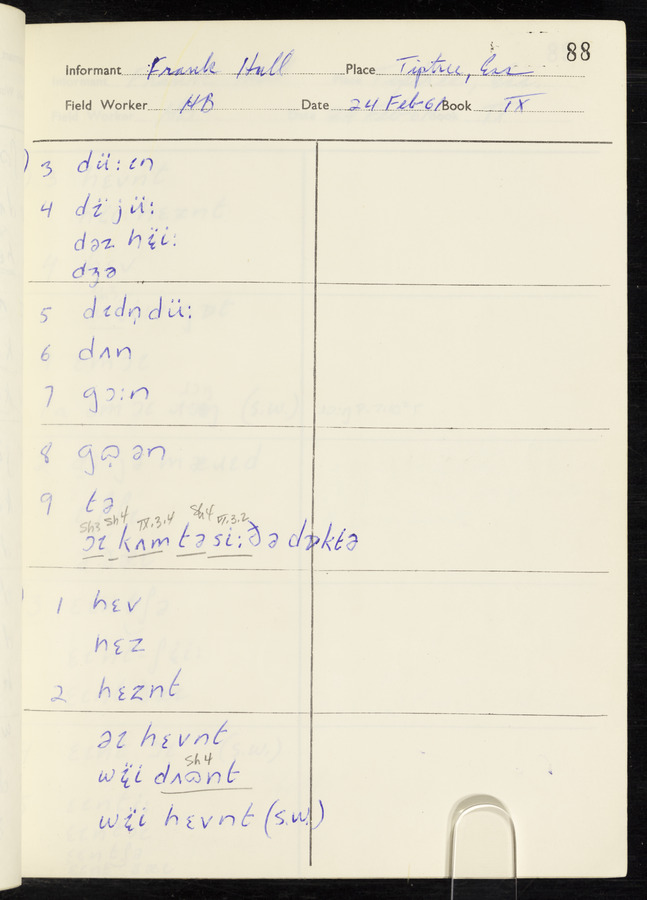 88
Informant Frank Hall Place Tiptree, Ess
Field Worker HB Date 24 Feb 61 Book IX
) 3 dü:ɪn
4 dɪ̈ jü:
dəz hë̞i:
dʒə
5 dɪdn̩dü:
6 dʌn
7 gɔ:n
8 gɷ̞ən
9 tə
Sh3 Sh4 IX.3.4 Sh4 VI.3.2
əɪ kʌm tə si: ðə dɒktə
) 1 hɛv
hɛz
2 hɛznt
əɪ hɛvnt
Sh4
wë̞i dʌɷnt
wë̞i hɛvnt (s.w.)